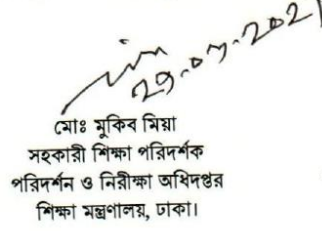 29.07.2021
মোঃ মুকিব মিয়া
সহকারী শিক্ষা পরিদর্শক
পরিদর্শন ও নিরীক্ষা অধিদপ্তর
শিক্ষা মন্ত্রণালয়, ঢাকা।